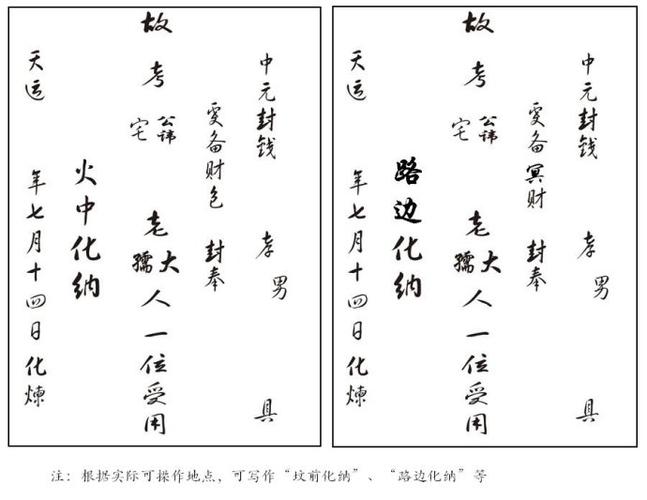 中元封钱 孝男 具
虔备财包 封奉
故考 公讳 宅 老大孺人一位受用
火中化纳
天运 年七月十四日化煉
中元封钱 孝男 具
虔备冥财 封奉
故考 公讳 宅 老大孺人一位受用
路边化纳
天运 年七月十四日化煉
注：根据实际可操作地点，可写作“坟前化纳”、“路边化纳”等